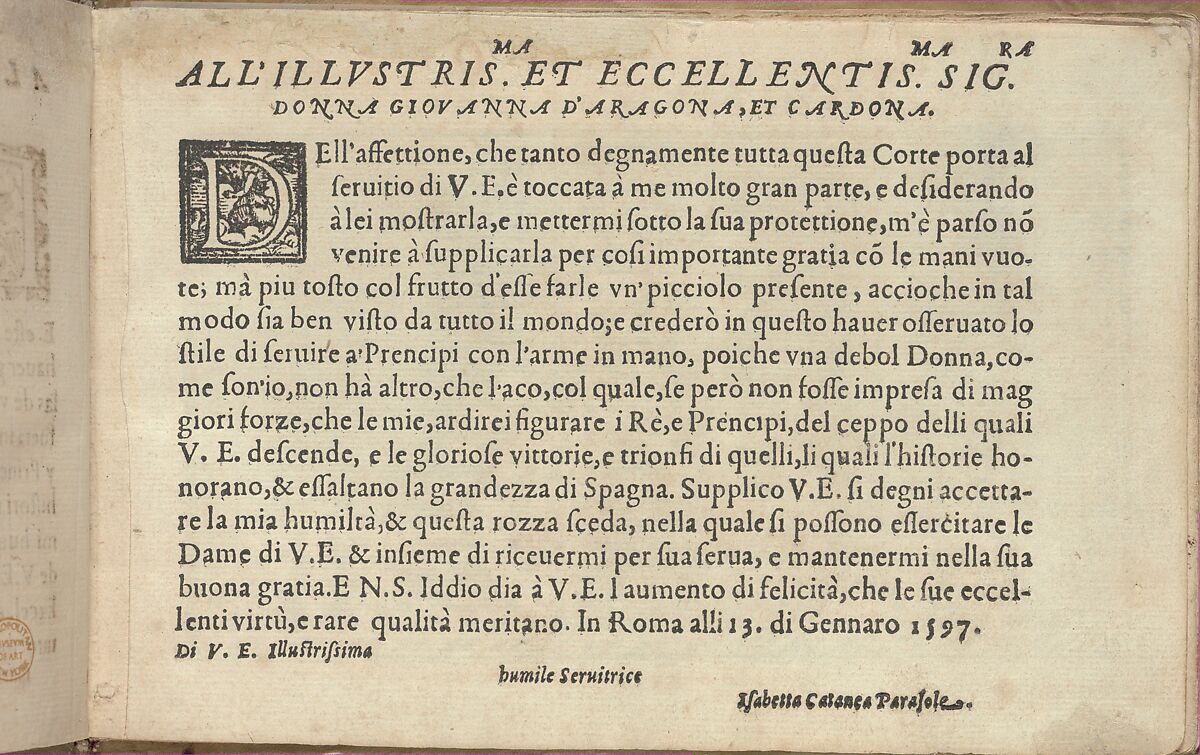 MA MA RA
ALL'ILLVSTRIS. ET ECCELLENTIS. SIG.
DONNA GIOVANNA D'ARAGONA, ET CARDONA.
DEll'affettione, che tanto degnamente tutta queſta Corte porta al
ſeruitio di V. E. è toccata à me molto gran parte, e deſiderando
à lei moſtrarla, e mettermi ſotto la ſua protettione, m'è parſo nō
venire à ſupplicarla per coſi importante gratia cō le mani vuo-
te; mà piu toſto col frutto d'eſſe farle vn' picciolo preſente, accioche in tal
modo ſia ben viſto da tutto il mondo; e crederò in queſto hauer oſſeruato lo
ſtile di ſeruire a' Prencipi con l'arme in mano, poiche vna debol Donna, co-
me ſon'io, non hà altro, che l'aco, col quale, ſe però non foſſe impreſa di mag
giori forze, che le mie, ardirei figurare i Rè, e Prencipi, del ceppo delli quali
V. E. deſcende, e le glorioſe vittorie, e trionfi di quelli, li quali l'hiſtorie ho-
norano, & eſſaltano la grandezza di Spagna. Supplico V.E. ſi degni accetta-
re la mia humiltà, & queſta rozza ſceda, nella quale ſi poſſono eſſercitare le
Dame di V.E. & inſieme di riceuermi per ſua ſerua, e mantenermi nella ſua
buona gratia. E N.S. Iddio dia à V.E. l aumento di felicità, che le ſue eccel-
lenti virtù, e rare qualità meritano. In Roma alli 13. di Gennaro 1597.
Di V. E. Illuſtriſſima
humile Seruitrice
Iſabetta Catanea Paraſole.